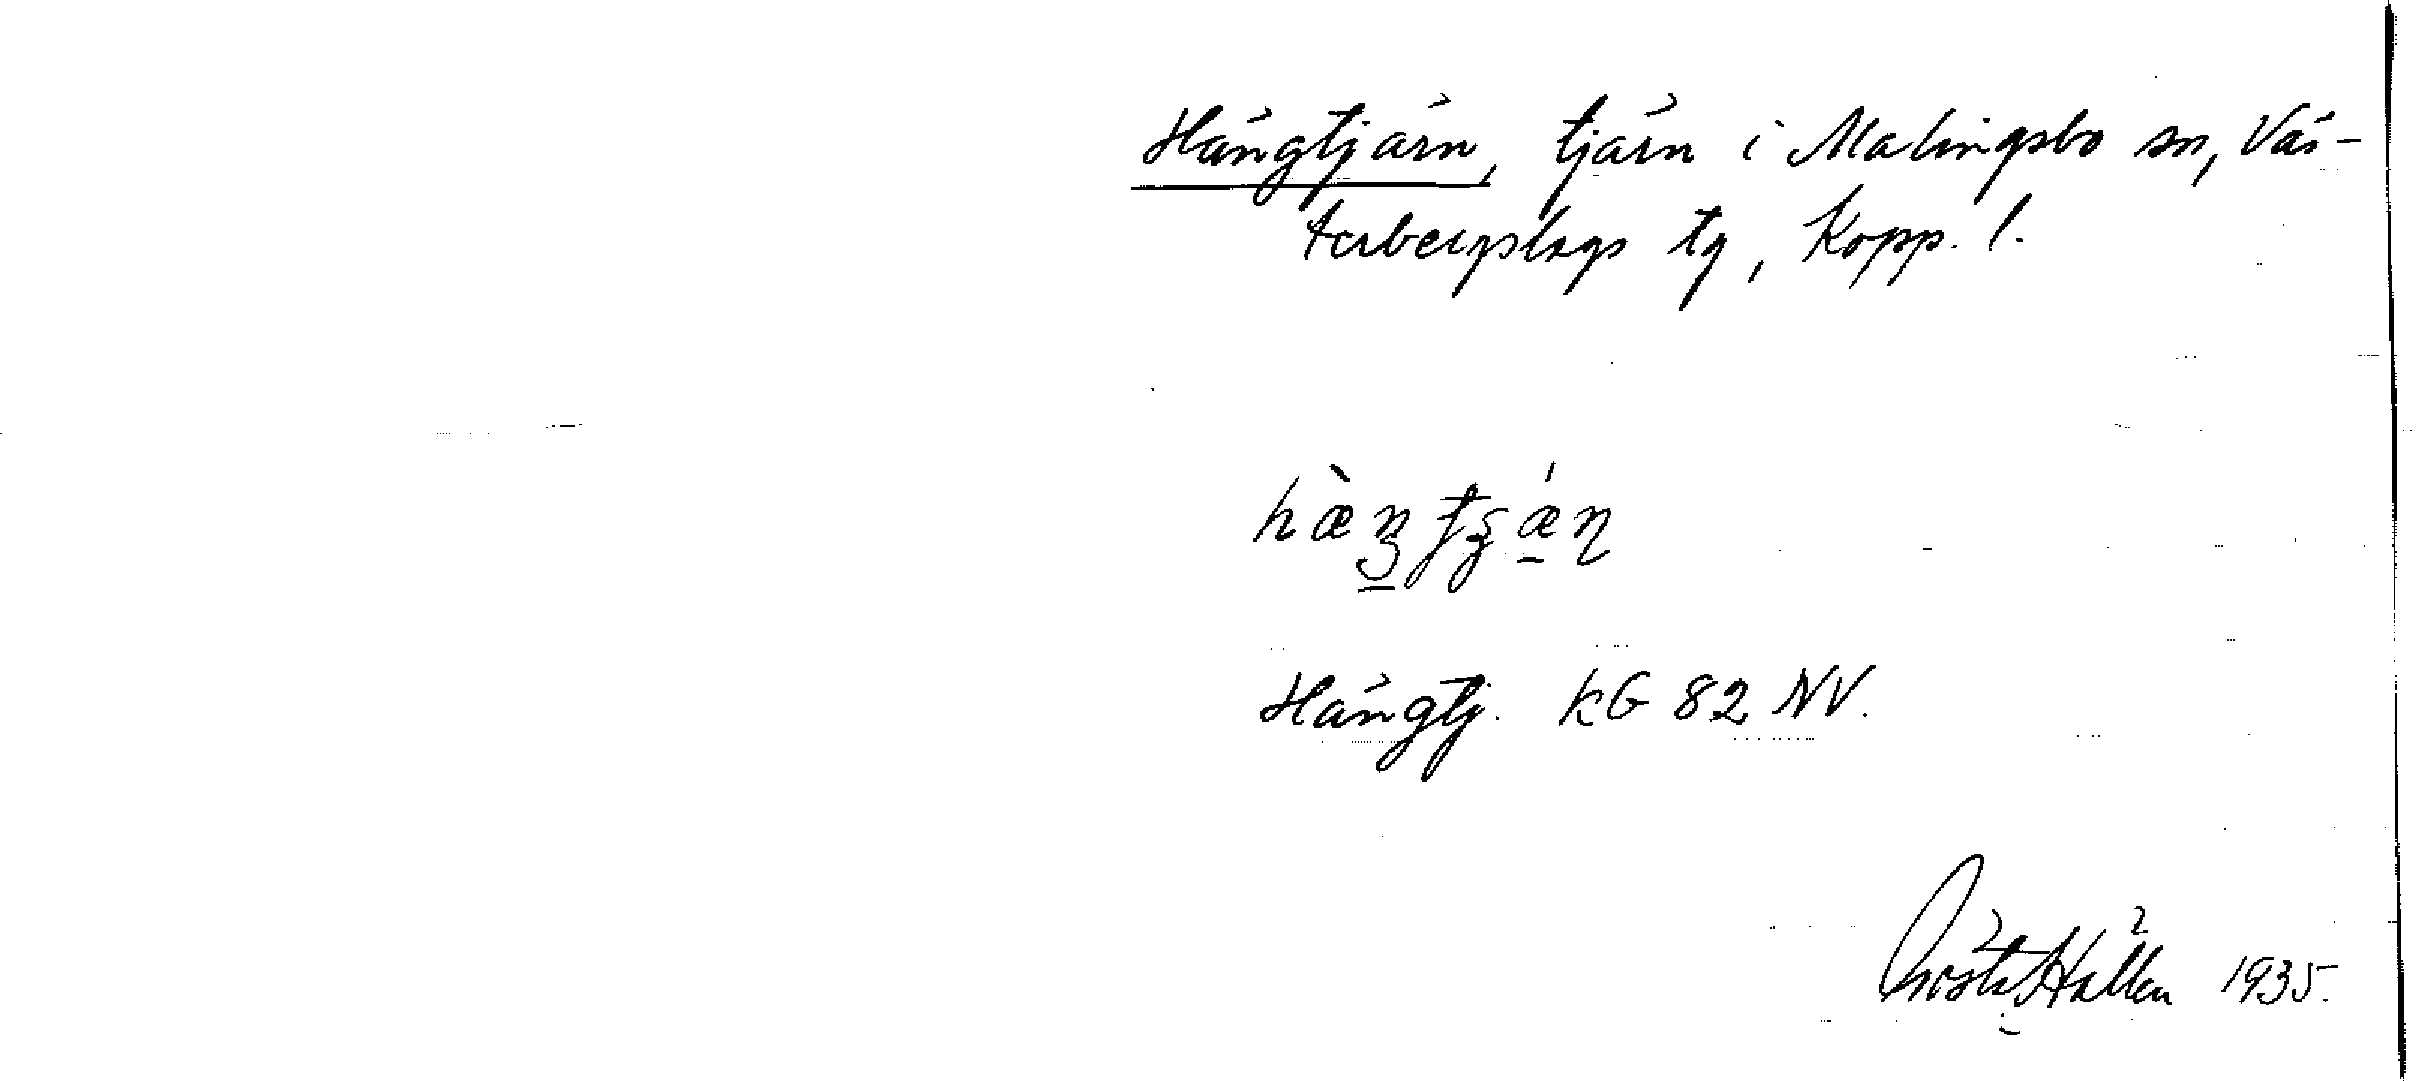 Hängtjärn, tjärn i Malingsbo sn, Väs-
terbergslags tg, Kopp. l.
Hängtj. KG 82 NV.
Gösta Hallén 1935.